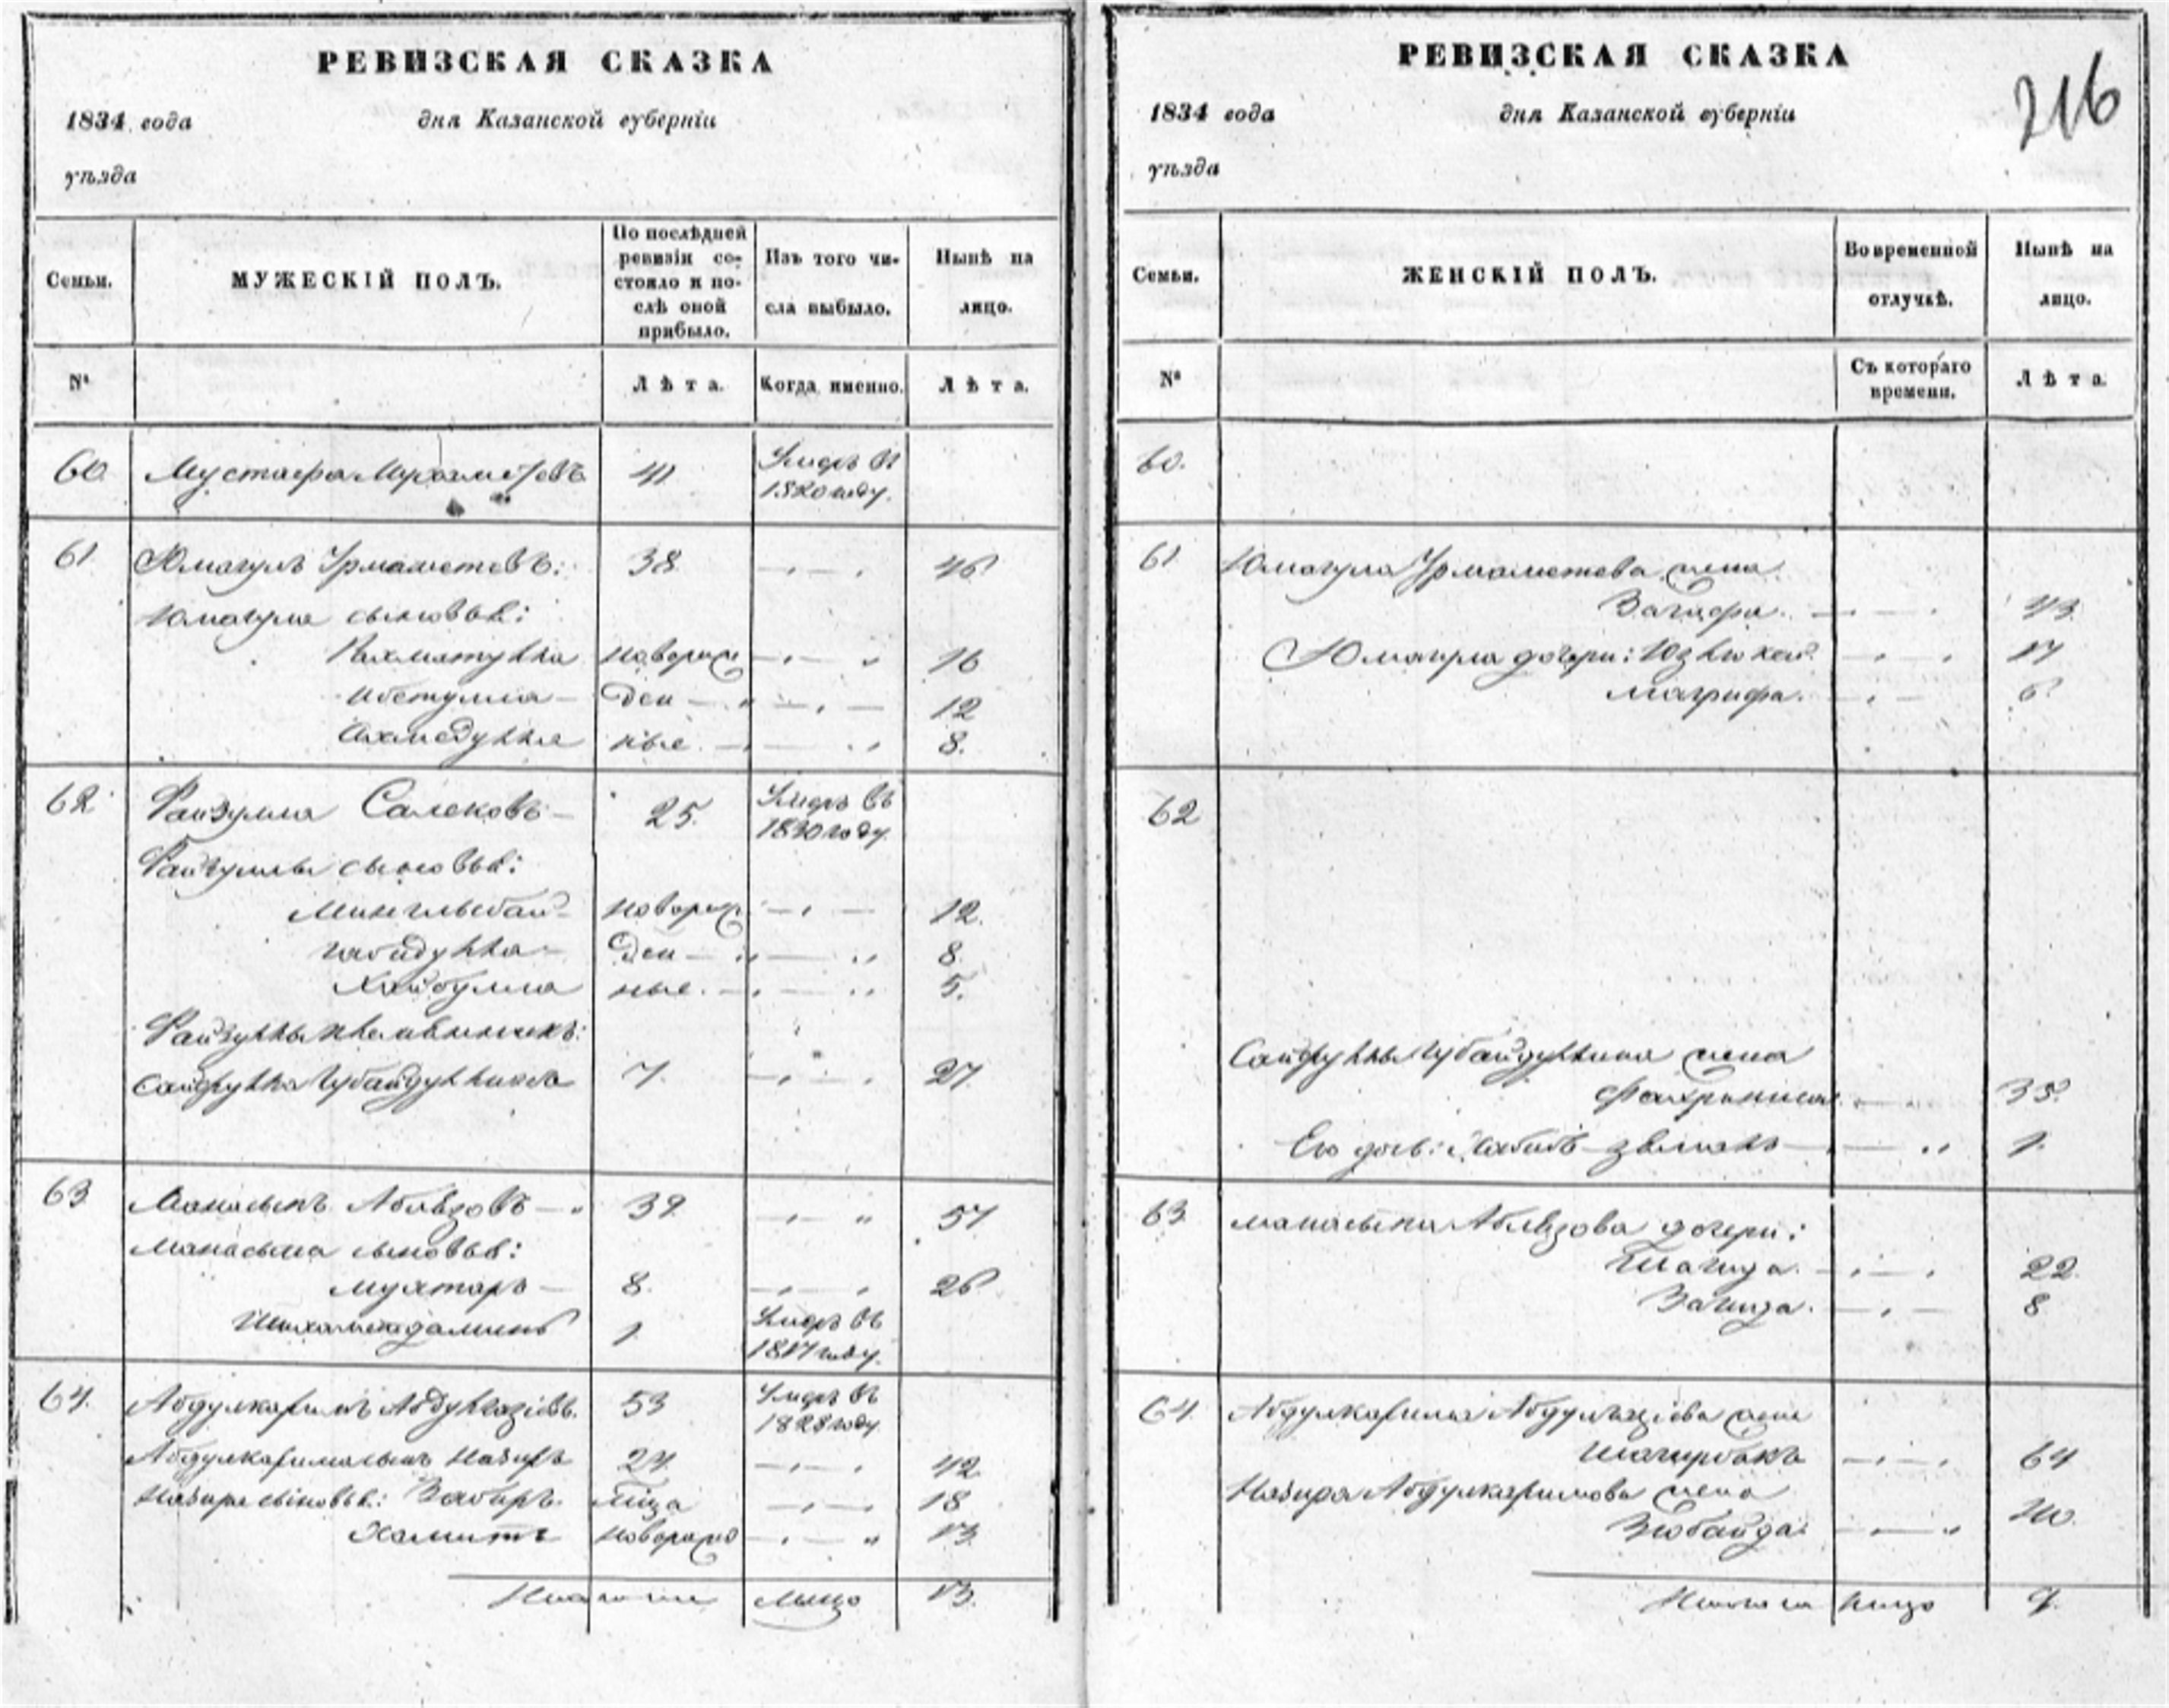 РЕВИЗСКАЯ СКАЗКА
1834 года дня Казанской губернiи
уѣзда
Семьи.
МУЖЕСКIЙ ПОЛЪ.
По послѣдней
ревизiи со-
стояло и по-
слѣ оной
прибыло.
Изъ того чи-
сла выбыло.
Нынѣ на
лицо.
№
Лѣта.
Когда именно.
Лѣта.
60. Мустафа 41 Умеръ въ
1820 году.
61 Юмагулъ Урмаметовъ: 38
Юмагула сыновья:
Рахматулла новорож 16
Ибетулла ден 12
Ахмедулла ные. 8.
62 Файзулла Салековъ 25. Умеръ въ
1830 году.
Файзуллы сыновья:
новорож 12.
Габидулла ден 8.
Хайбулла ные. 5.
Файзуллы племянникъ:
Сайфулла Губайдуллинъ 7. 27
63 Манасыпъ Аблязовъ 39 57
Манасыпа сыновья:
Мухтаръ 8. 26
1. Умеръ въ
1817 году.
64. Абдулкаримъ 53 Умеръ въ
1828 году
Абдулкарима сынъ Назиръ 24. 42
Назира сыновья: Забиръ 18
Хамитъ новорожд 13.
Итого на лицо 13.
РЕВИЗСКАЯ СКАЗКА
216
1834 года дня Казанской губернiи
уѣзда
Семьи.
ЖЕНСКIЙ ПОЛЪ.
Во временной
отлучкѣ.
Нынѣ на
лицо.
№
Съ котораго
времени.
Лѣта.
60.
61 Юмагула Урмаметева жена
43.
Юмагула дочери: 17
Магрифа. 6.
62
Сайфуллы Губайдуллина жена
35.
Его дочь: 1.
63 Манасыпа Аблязова дочери:
22.
Загида. 8
64. Абдулкарима жена
64
Назира Абдулкаримова жена
Зюбайда 40.
Итого на лицо 9.